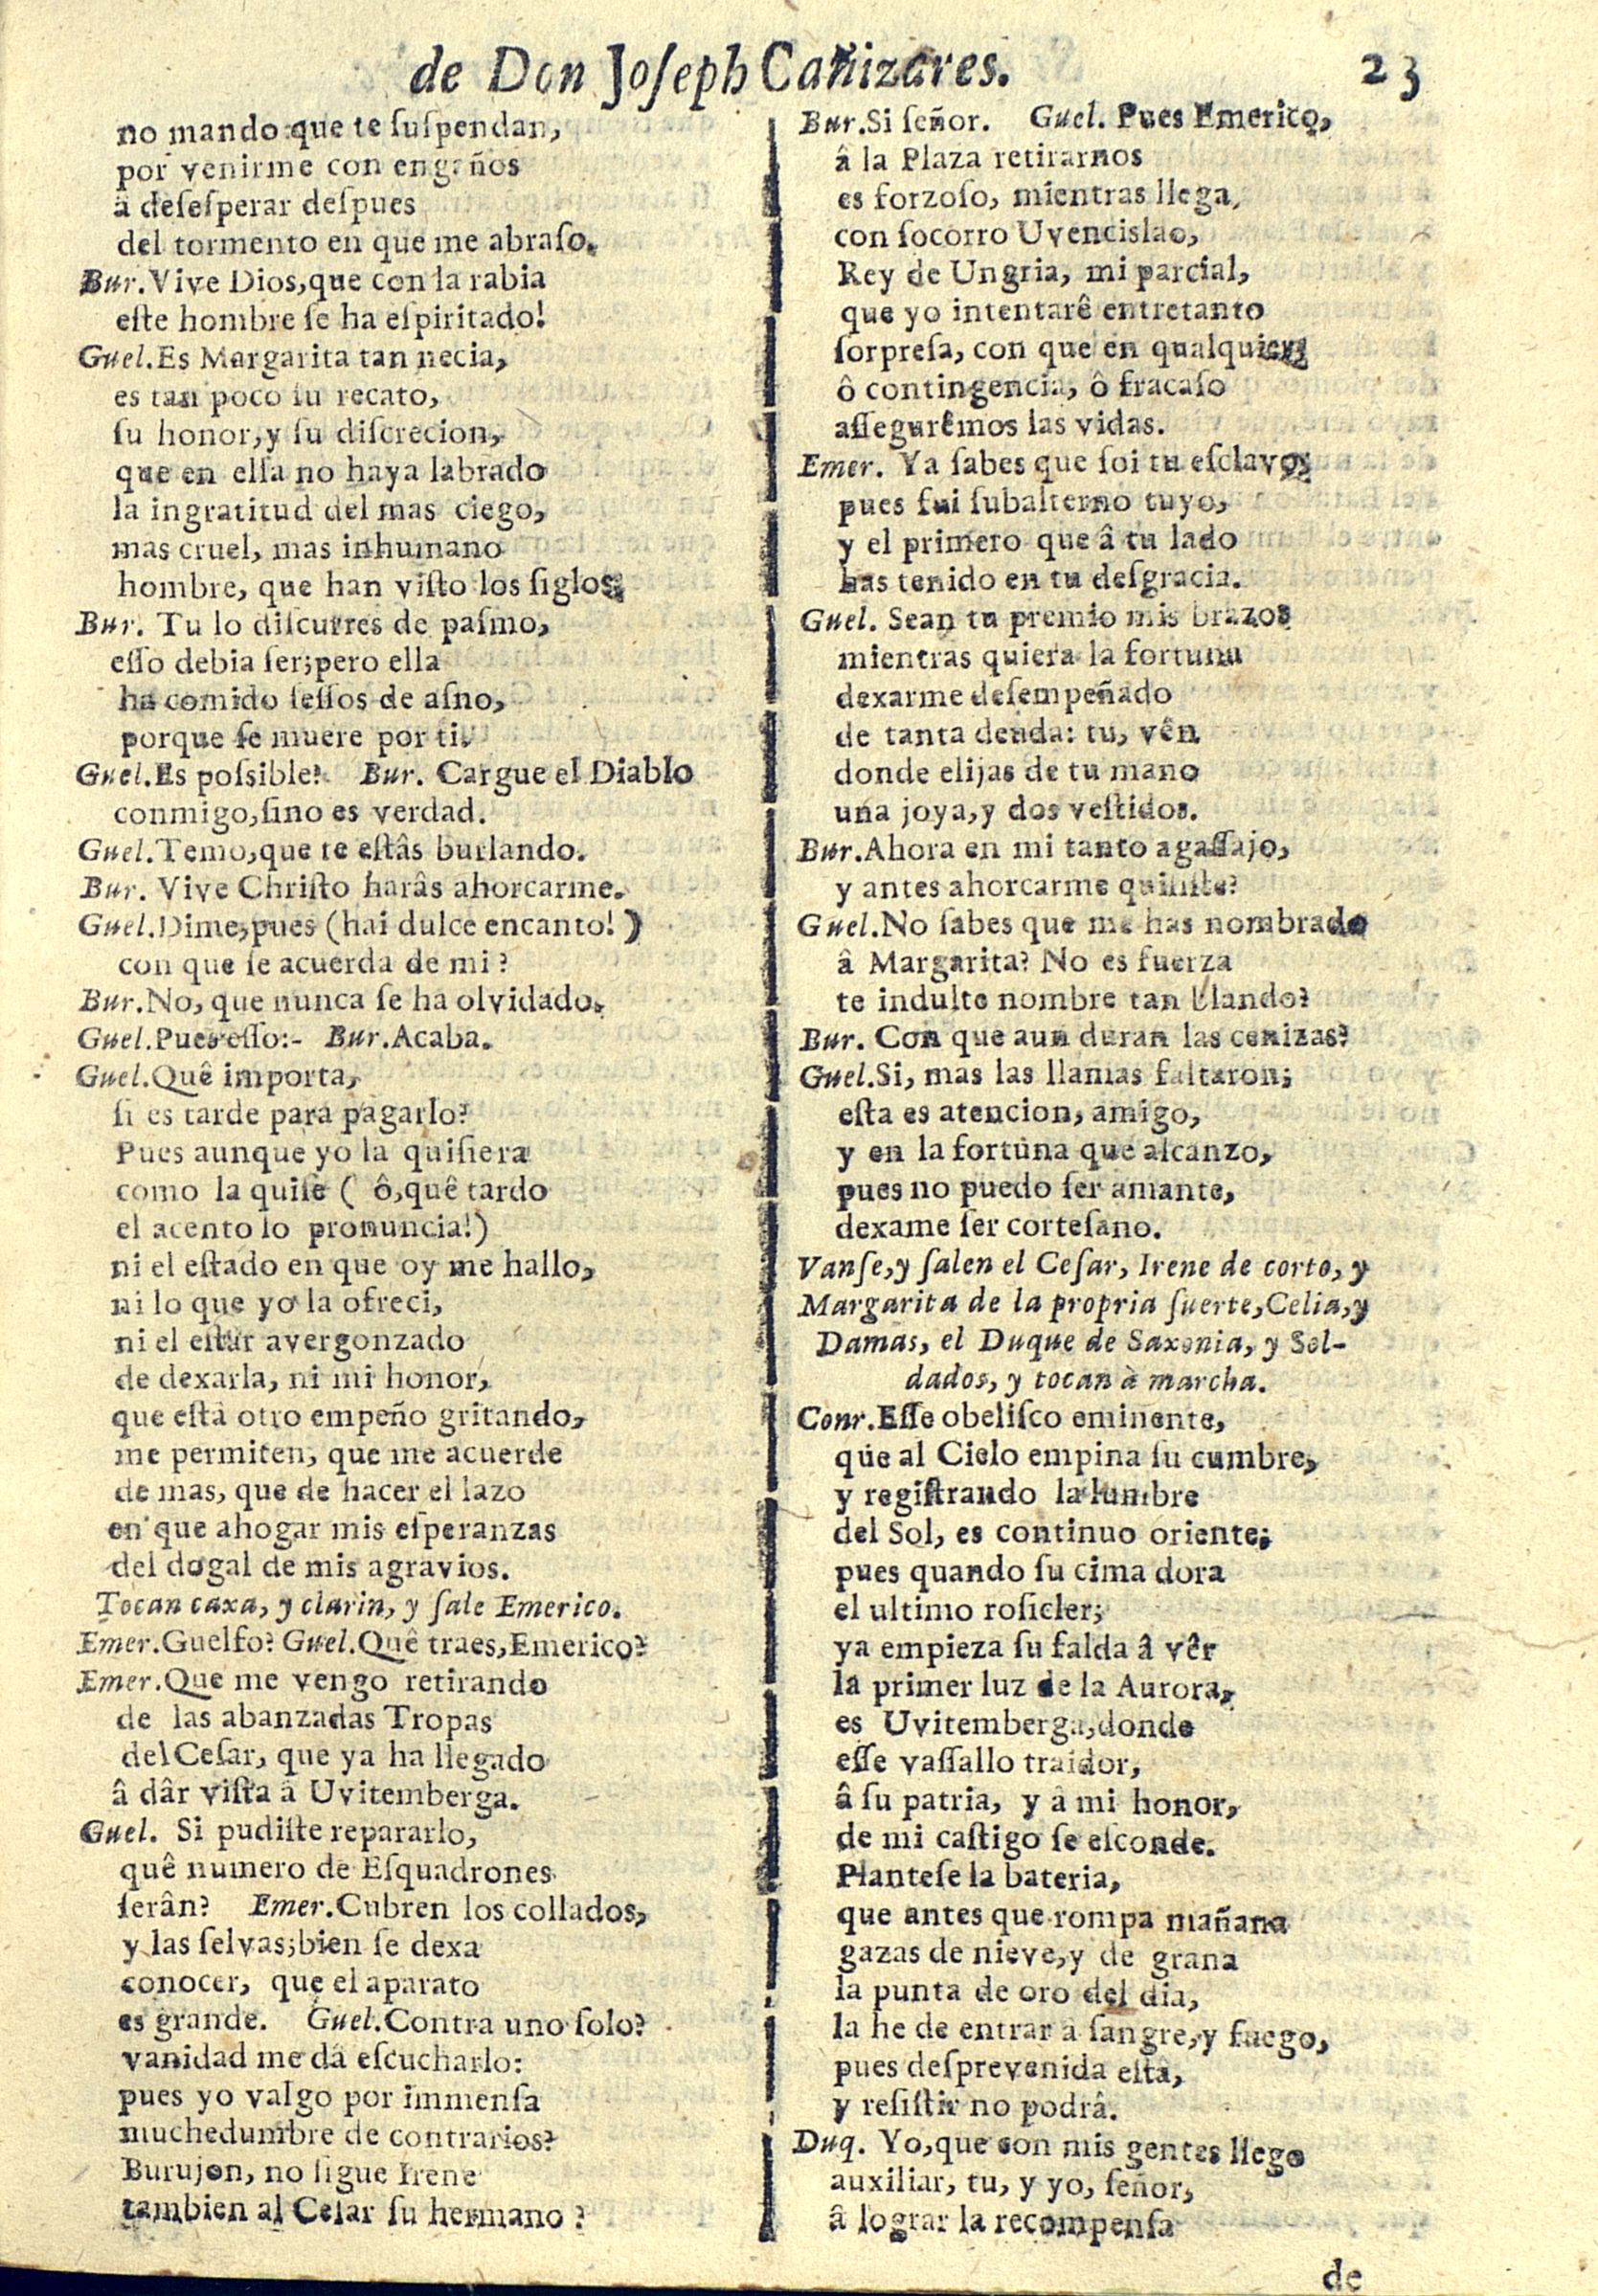 de Don Joſeph Cañizares. 23
no mando que te ſuſpendan,
por venirme con engaños
â deſeſperar deſpues
del tormento en que me abraſo.
Bur. Vive Dios, que con la rabia
eſte hombre ſe ha eſpiritado!
Guel. Es Margarita tan necia,
es tan poco ſu recato,
ſu honor, y ſu diſcrecion,
que en ella no haya labrado
la ingratitud del mas ciego,
mas cruel, mas inhumano
hombre, que han viſto los ſiglos;
Bur. Tu lo diſcurres de paſmo,
eſſo debia ſer; pero ella
ha comido ſeſſos de aſno,
porque ſe muere por ti.
Guel. Es poſsible? Bur. Cargue el Diablo
conmigo, ſino es verdad.
Guel. Temo, que te eſtâs burlando.
Bur. Vive Chriſto harâs ahorcarme.
Guel. Dime, pues (hai dulce encanto!)
con que ſe acuerda de mi?
Bur. No, que nunca ſe ha olvidado.
Guel. Pues eſſo:- Bur. Acaba.
Guel. Quê importa,
ſi es tarde para pagarlo?
Pues aunque yo la quiſiera
como la quiſe ( ô, quê tardo
el acento lo pronuncia!)
ni el eſtado en que oy me hallo,
ni lo que yo la ofreci,
ni el eſtar avergonzado
de dexarla, ni mi honor,
que eſtâ otro empeño gritando,
me permiten, que me acuerde
de mas, que de hacer el lazo
en que ahogar mis eſperanzas
del dogal de mis agravios.
Tocan caxa, y clarin, y ſale Emerico.
Emer. Guelfo? Guel. Quê traes, Emerico?
Emer. Que me vengo retirando
de las abanzadas Tropas
del Ceſar, que ya ha llegado
â dâr viſta â Uvitemberga.
Guel. Si pudiſte repararlo,
quê numero de Eſquadrones
ſerân? Emer. Cubren los collados,
y las ſelvas; bien ſe dexa
conocer, que el aparato
es grande. Guel. Contra uno ſolo?
vanidad me dâ eſcucharlo:
pues yo valgo por immenſa
muchedumbre de contrarios?
Burujon, no ſigue Irene
tambien al Ceſar ſu hermano?
Bur. Si ſeñor. Guel. Pues Emerico,
â la Plaza retirarnos
es forzoſo, mientras llega,
con ſocorro Uvencislao,
Rey de Ungria, mi parcial,
que yo intentarê entretanto
ſorpreſa, con que en qualquiera
ô contingencia, ô fracaſo
aſſegurêmos las vidas.
Emer. Ya ſabes que ſoi tu eſclavo;
pues fui ſubalterno tuyo,
y el primero que â tu lado
has tenido en tu deſgracia.
Guel. Sean tu premio mis brazos
mientras quiera la fortuna
dexarme deſempeñado
de tanta deuda: tu, vên
donde elijas de tu mano
una joya, y dos veſtidos.
Bur. Ahora en mi tanto agaſſajo,
y antes ahorcarme quiſiſte?
Guel. No ſabes que me has nombrado
â Margarita? No es fuerza
te indulte nombre tan blando?
Bur. Con que aun duran las cenizas?
Guel. Si, mas las llamas faltaron;
eſta es atencion, amigo,
y en la fortuna que alcanzo,
pues no puedo ſer amante,
dexame ſer corteſano.
Vanſe, y ſalen el Ceſar, Irene de corto, y
Margarita de la propria ſuerte, Celia, y
Damas, el Duque de Saxonia, y Sol-
dados, y tocan à marcha.
Conr. Eſſe obeliſco eminente,
que al Cielo empina ſu cumbre,
y regiſtrando la lumbre
del Sol, es continuo oriente;
pues quando ſu cima dora
el ultimo roſicler;
ya empieza ſu falda â vêr
la primer luz de la Aurora,
es Uvitemberga, donde
eſſe vaſſallo traidor,
â ſu patria, y â mi honor,
de mi caſtigo ſe eſconde.
Planteſe la bateria,
que antes que rompa mañana
gazas de nieve, y de grana
la punta de oro del dia,
la he de entrar â ſangre, y fuego,
pues deſprevenida eſtâ,
y reſiſtir no podrâ.
Duq. Yo, que con mis gentes llego
auxiliar, tu, y yo, ſeñor,
â lograr la recompenſa
de